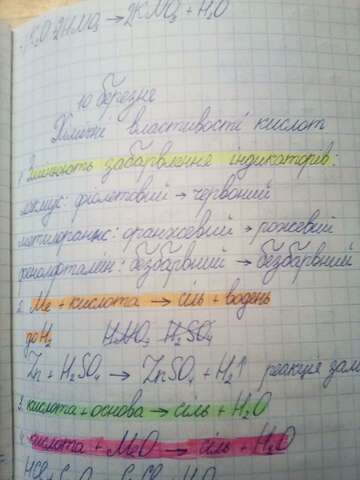 K₂O + 2HNO₃ → 2KNO₃ + H₂O
10 березня
Хімічні властивості кислот
1. Змінюють забарвлення індикаторів:
лакмус: фіолетовий → червоний
метилоранж: оранжевий → рожевий
фенолфталеїн: безбарвний → безбарвний
2. Me + кислота → сіль + водень
до H₂ H̶N̶O̶₃̶ H̶₂̶S̶O̶₄̶
Zn + H₂SO₄ → ZnSO₄ + H₂↑ реакція зам
3. кислота + основа → сіль + H₂O
4. кислота + MeO → сіль + H₂O